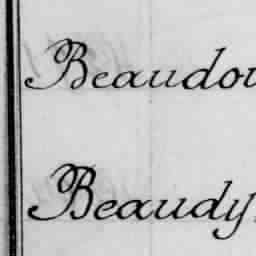 Beaudou
Beaudy